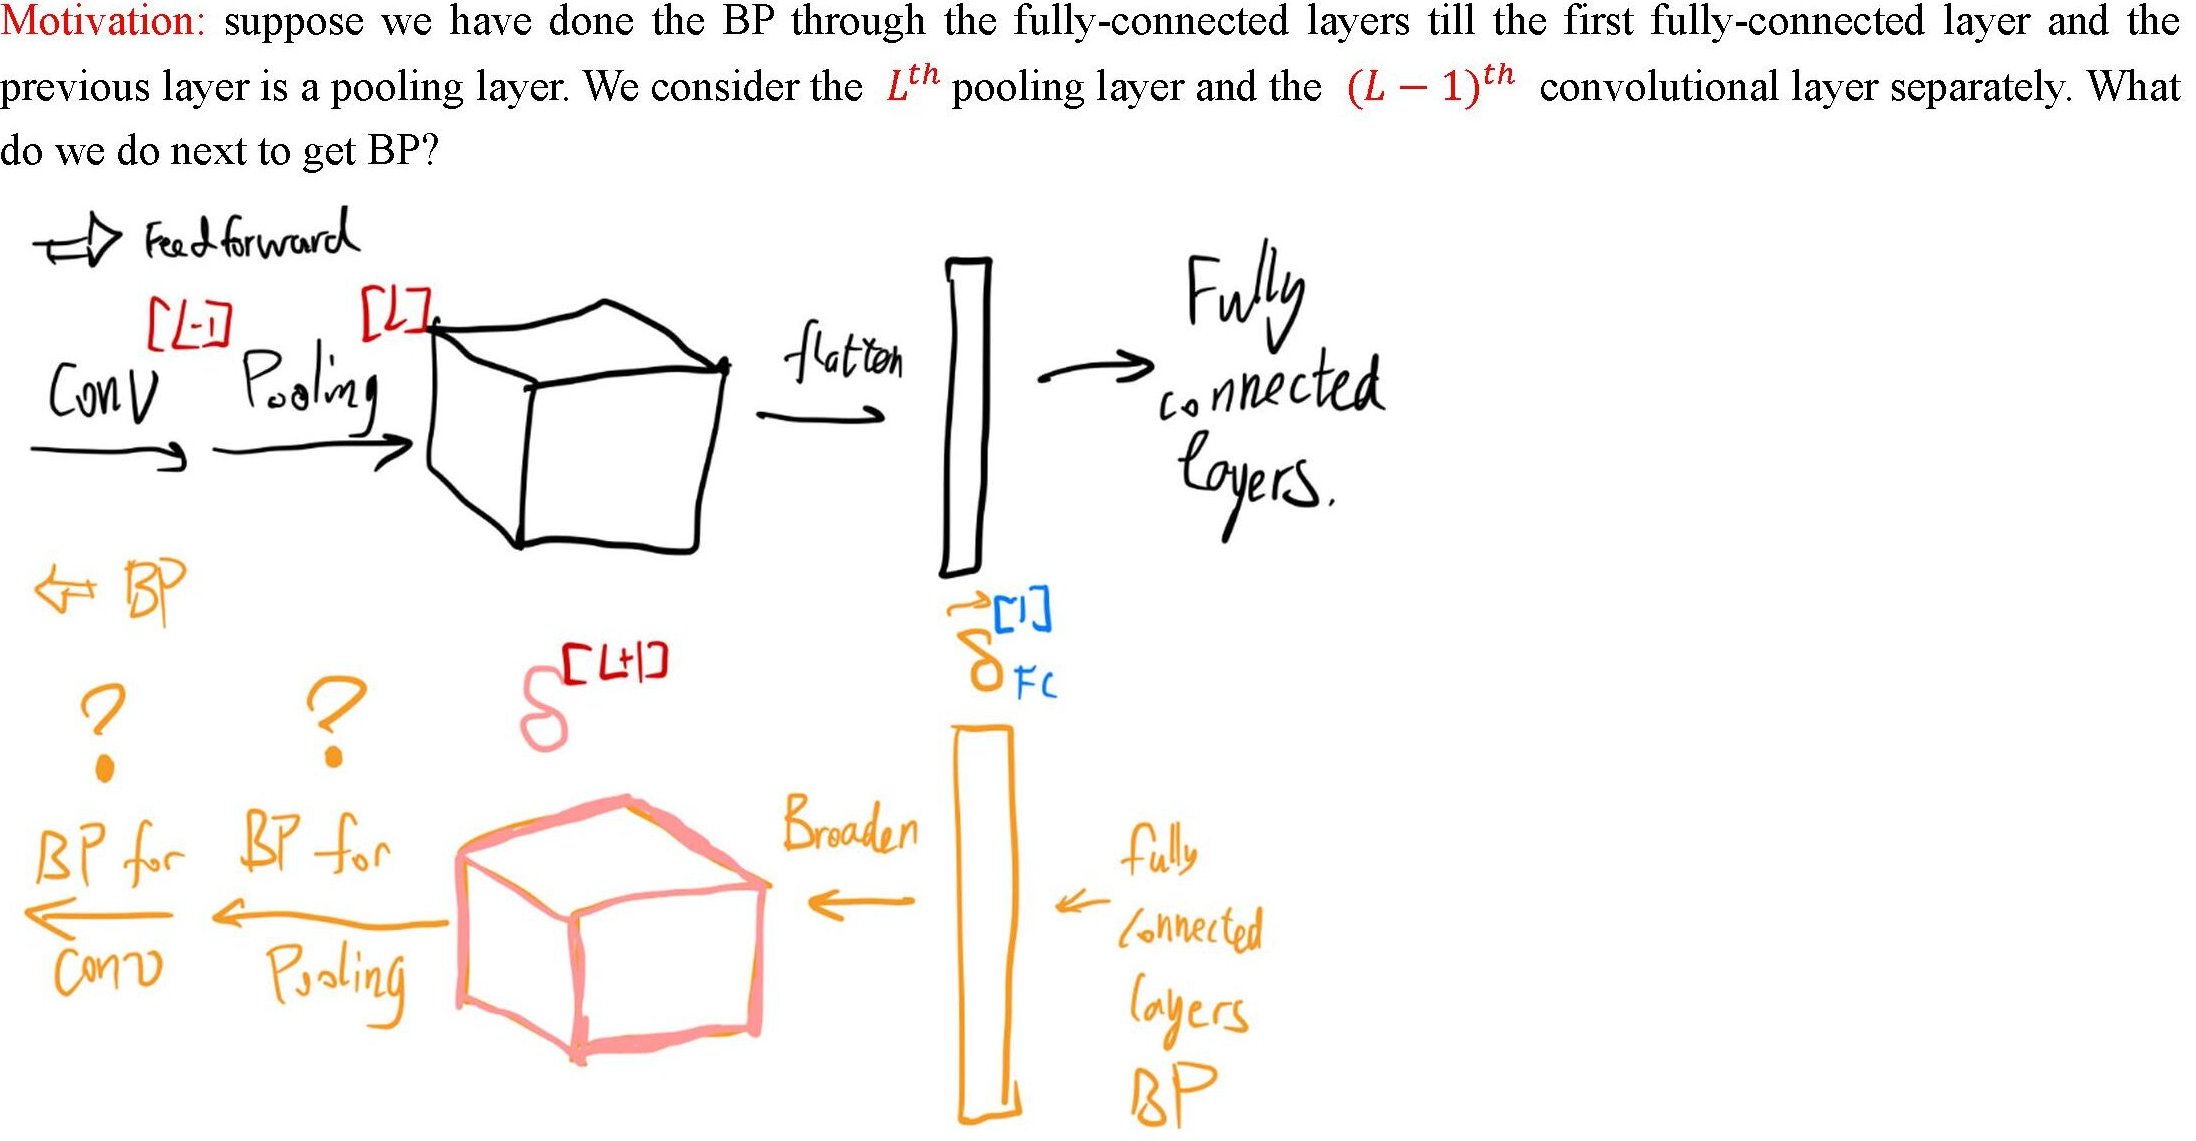 Motivation: suppose we have done the BP through the fully-connected layers till the first fully-connected layer and the
previous layer is a pooling layer. We consider the Lᵗʰ pooling layer and the (L − 1)ᵗʰ convolutional layer separately. What
do we do next to get BP?
⇒ Feedforward
[L-1] [L]
Conv Pooling
flatten
Fully
connected
layers.
⇐ BP
δ⃗ [1] FC
δ [L+1]
? ?
BP for
Conv
BP for
Pooling
Broaden
fully
connected
layers
BP